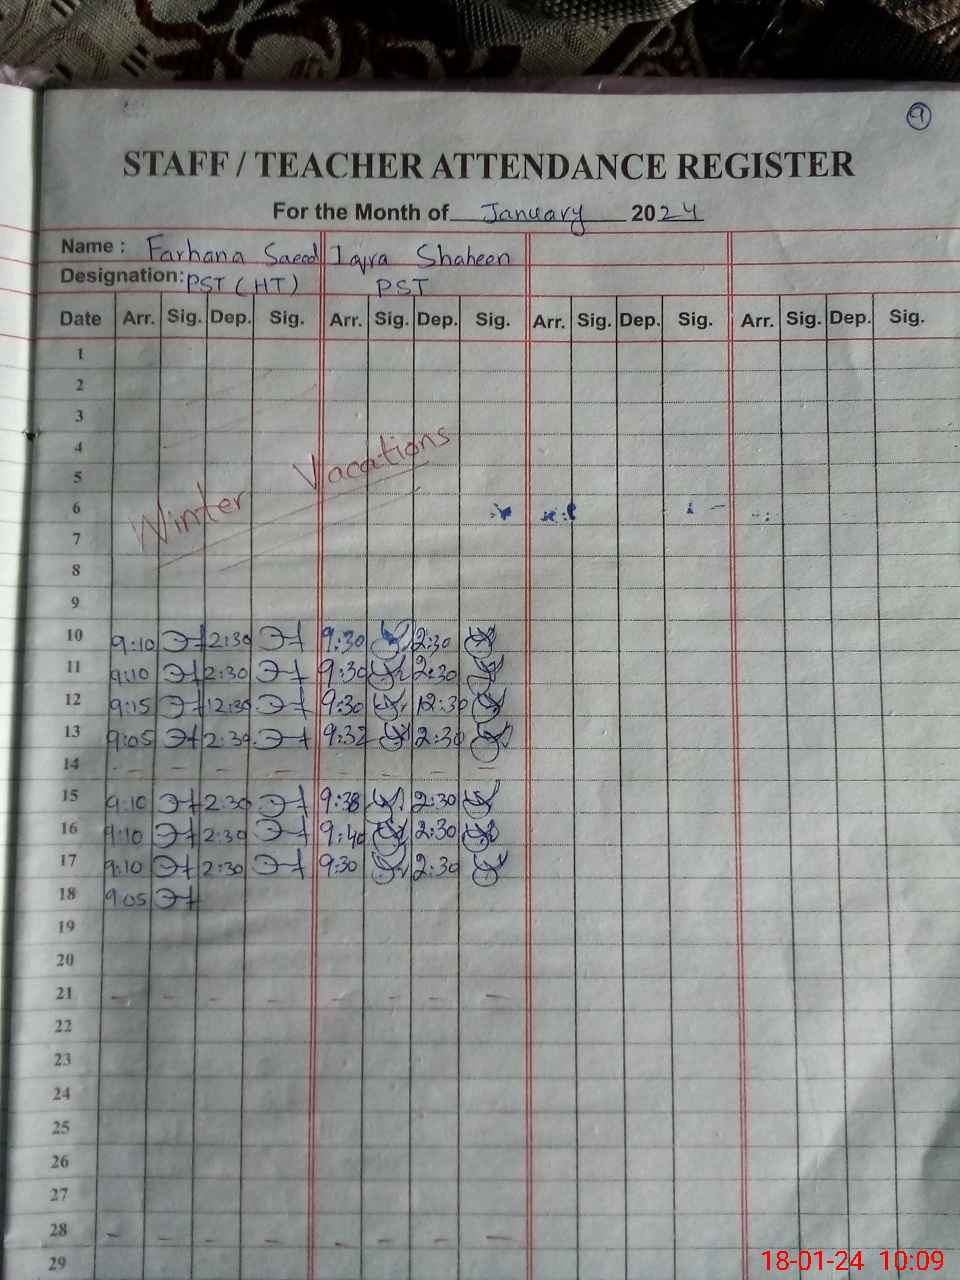 9
STAFF / TEACHER ATTENDANCE REGISTER
For the Month of January 2024
Name : Farhana Saeed Iqra Shaheen
Designation: PST (HT) PST
Date Arr. Sig. Dep. Sig. Arr. Sig. Dep. Sig. Arr. Sig. Dep. Sig. Arr. Sig. Dep. Sig.
1
2
3
4
5
6
7
8
9
Winter Vacations
10 9:10 2:30 9:30 2:30
11 9:10 2:30 9:30 2:30
12 9:15 12:30 9:30 12:30
13 9:05 2:30 9:32 2:30
14 - - - - - - - -
15 9:10 2:30 9:38 2:30
16 9:10 2:30 9:40 2:30
17 9:10 2:30 9:30 2:30
18 9:05
19
20
21 - - - - - - - -
22
23
24
25
26
27
28 - - - - - - - -
29
18-01-24 10:09